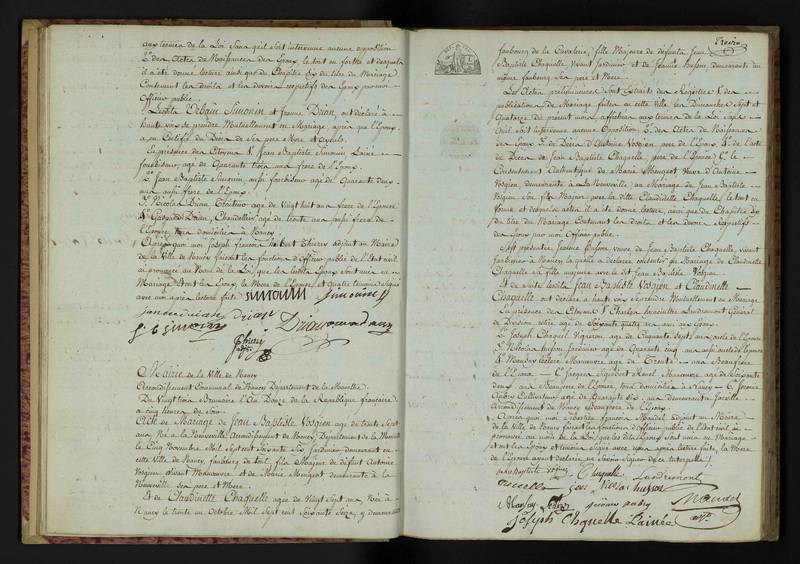 aux termes de la Loi sans qu'il soit intervenu aucune opposition
2.° des Actes de Naissances des Epoux, le tout en forme, et desquels
il a été donné lecture ainsi que du Chapitre Six du titre du Mariage
Contenant les droits et les devoirs respectifs des Epoux par moi
Officier public.
Lesdits Urbain Simonin et Jeanne Drian, ont déclaré à
haute voix se prendre Mutuellement en Mariage, après que l'Epoux
En présence des Citoyens 1.° Jean Baptiste Simonin L'ainé
fourbisseur, agé de Quarante trois ans frère de l'Epoux.
2.° Jean Baptiste Simonin, aussi fourbisseur agé de Quarante deux
ans aussi frère de l'Epoux.
3.° Nicolas Drian agé de Vingt huit ans frère de l'Epouse
4.° Gaspard Drian, Chandellier agé de trente ans aussi frère de
l'Epouse, tous domiciliés à Nancy
Après quoi moi Joseph françois Thierry adjoint au Maire
de la Ville de Nancy faisant les fonctions d'Officier public de l'Etat civil
ai prononcé au Nom de la Loi, que lesdits Epoux sont unis en
Mariage, et ont les Epoux, la Mère de l'Epouse, et quatre témoins Signé
avec moi après lecture faite. simonin simonin
Drian
simonin Drian
Thierry
adjt
Mairie de la Ville de Nancy
Arrondissement Communal de Nancy Département de la Meurthe.
Du Vingt trois Brumaire l'An Douze de la République française
à cinq heures du Soir.
Acte de Mariage de Jean Baptiste Vosgien agé de trente Sept
ans Né à la Neuveville Arrondissement de Nancy, Département de la Meurthe
le Cinq Novembre Mil Sept cent Soixante Six, Jardinier demeurant en
cette Ville de Nancy, faubourg de toul, fils Majeur de défunt Antoine
Vosgien vivant Manoeuvre, et de Marie Mougeot demeurante à la
Neuveville ses père et Mère.
Et de Claudinette Chaquelle agée de Vingt Sept ans, Née à
Nancy le trente un Octobre Mil Sept cent Soixante Seize, y demeurante
faubourg de la Cavalerie, fille Majeure de défunt Jean
Baptiste Chaquelle, vivant Jardinier et de Jeanne Husson, demeurante au
même faubourg Ses père et Mère.
Les Actes préliminaires Sont Extraits des Registres 1.° des
publications de Mariage faites en cette Ville les Dimanches Sept et
Quatorze du présent mois, affichées aux termes de la Loi sans
qu'il soit intervenu aucune Opposition 2.° des Actes de Naissances
des Epoux, 3.° de Décès d'Antoine Vosgien père de l'Epoux 4.° de l'acte
de Décès de Jean Baptiste Chaquelle, père de l'Epouse 5.° le
Consentement Authentique de Marie Mougeot Veuve d'Antoine
Vosgien, demeurante à La Neuveville, au Mariage de Jean Baptiste
Vosgien Son fils Majeur, avec la dite Claudinette Chaquelle, le tout en
forme et desquels actes il a été donné lecture, ainsi que du Chapitre Six
du titre du Mariage Contenant les droits et les devoirs Respectifs
des Epoux par moi Officier public.
Est présente Jeanne Husson, veuve de Jean Baptiste Chaquelle, vivant
Jardinier à Nancy, laquelle a déclaré consentir au Mariage de Claudinette
Chaquelle sa fille majeure avec le dit Jean Baptiste Vosgien.
Et de Suite lesdits Jean Baptiste Vosgien et Claudinette
Chaquelle ont déclaré à haute voix se prendre Mutuellement en Mariage
En présence des Citoyens 1.° Charles Landremont Général
de Division, retiré agé de Soixante quatre ans
2.° Joseph Chaquel Vigneron, agé de Cinquante Sept ans oncle de l'Epouse
3.° Nicolas husson Jardinier agé de Quarante cinq ans aussi oncle de l'épouse
Manoeuvre agé de Trente ans Beaufrère
de l'Epoux Jacques Manoeuvre agé de Soixante
deux ans Beaupère de l'Epouse, tous domiciliés à Nancy
Aubry Cultivateur agé de Quarante Six ans demeurant à
Arrondissement de Nancy Beaufrère de l'Epoux.
Après quoi moi Sébastien françois Mandel adjoint au Maire
de la Ville de Nancy faisant les fonctions d'Officier public de l'Etat civil ai
prononcé au nom de la Loi, que lesdits Epoux sont unis en Mariage
et ont les Epoux et témoins Signé avec moi après lecture faite, la Mère
de l'Epouse ayant déclaré ne Savoir Signer de ce Interpellée.
jean Baptiste vosgien Chaquelle Landremont
Nicolas husson
aubry Mandel
Joseph Chquelle L'ainée adjt.